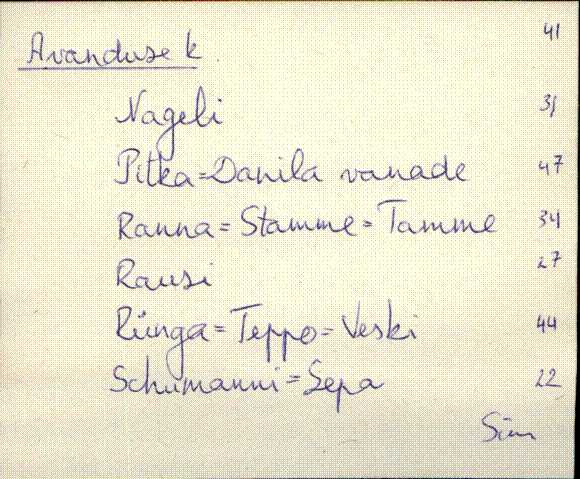 41
Avanduse k
Nageli 31
Pitka=Danila vanade 47
Ranna=Stamme=Tamme 34
Rausi 27
Rünga=Teppo=Veski 44
Schumanni=Sepa 22